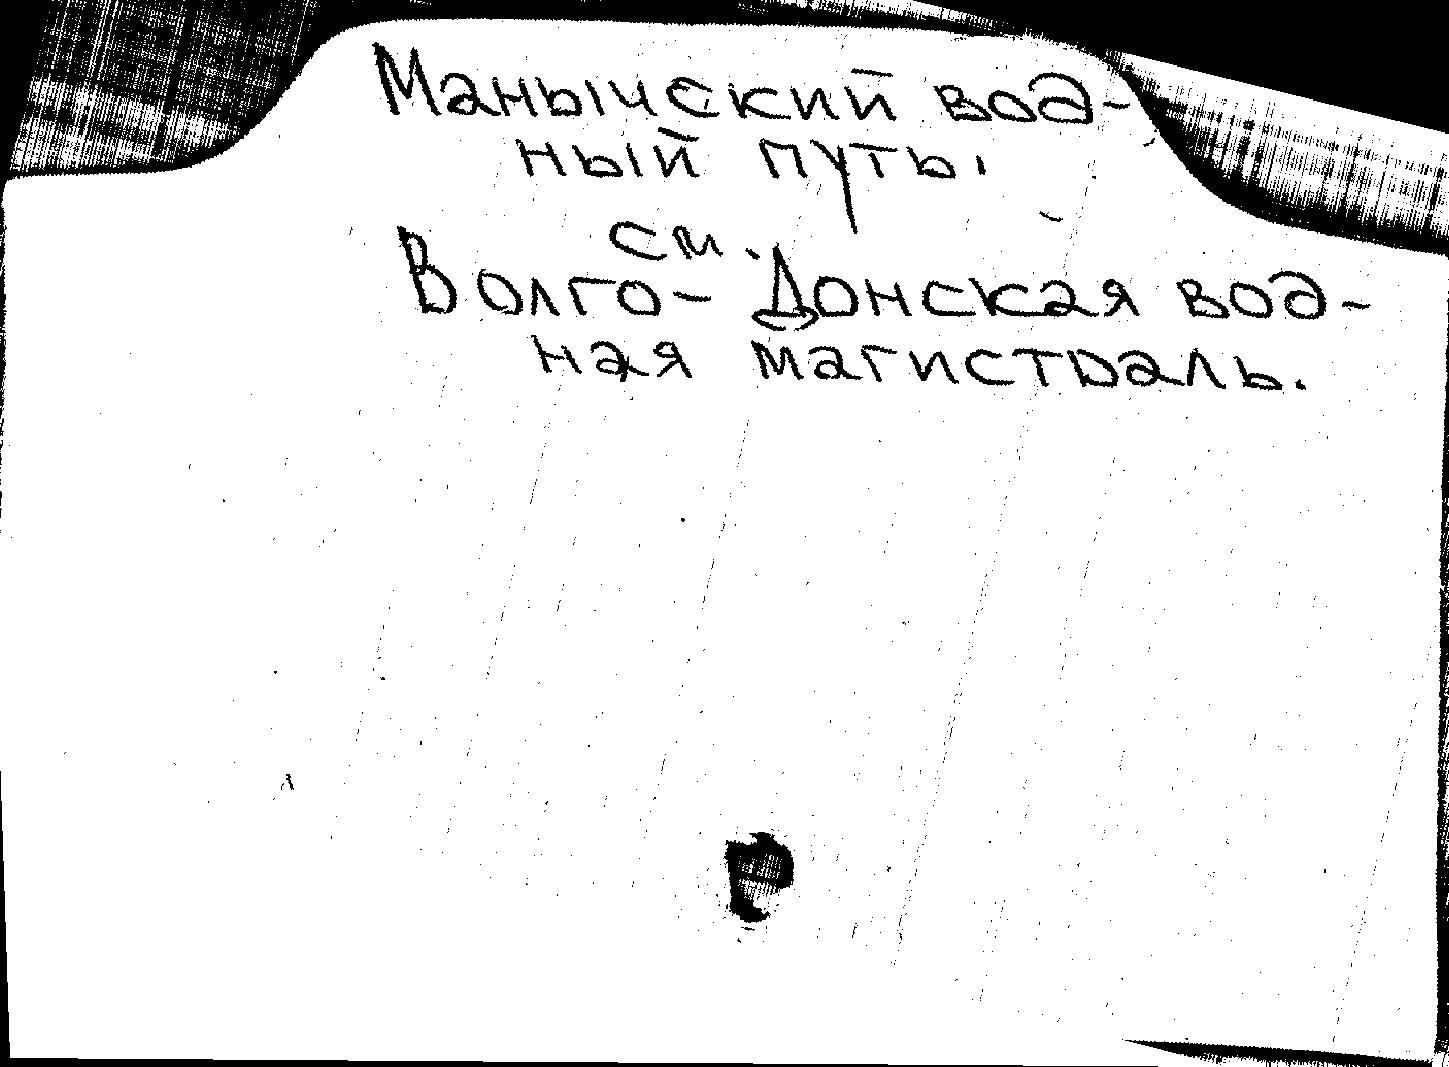 Манычский вод-
ный путь.
см.
Волго-Донская вод-
ная магистраль.